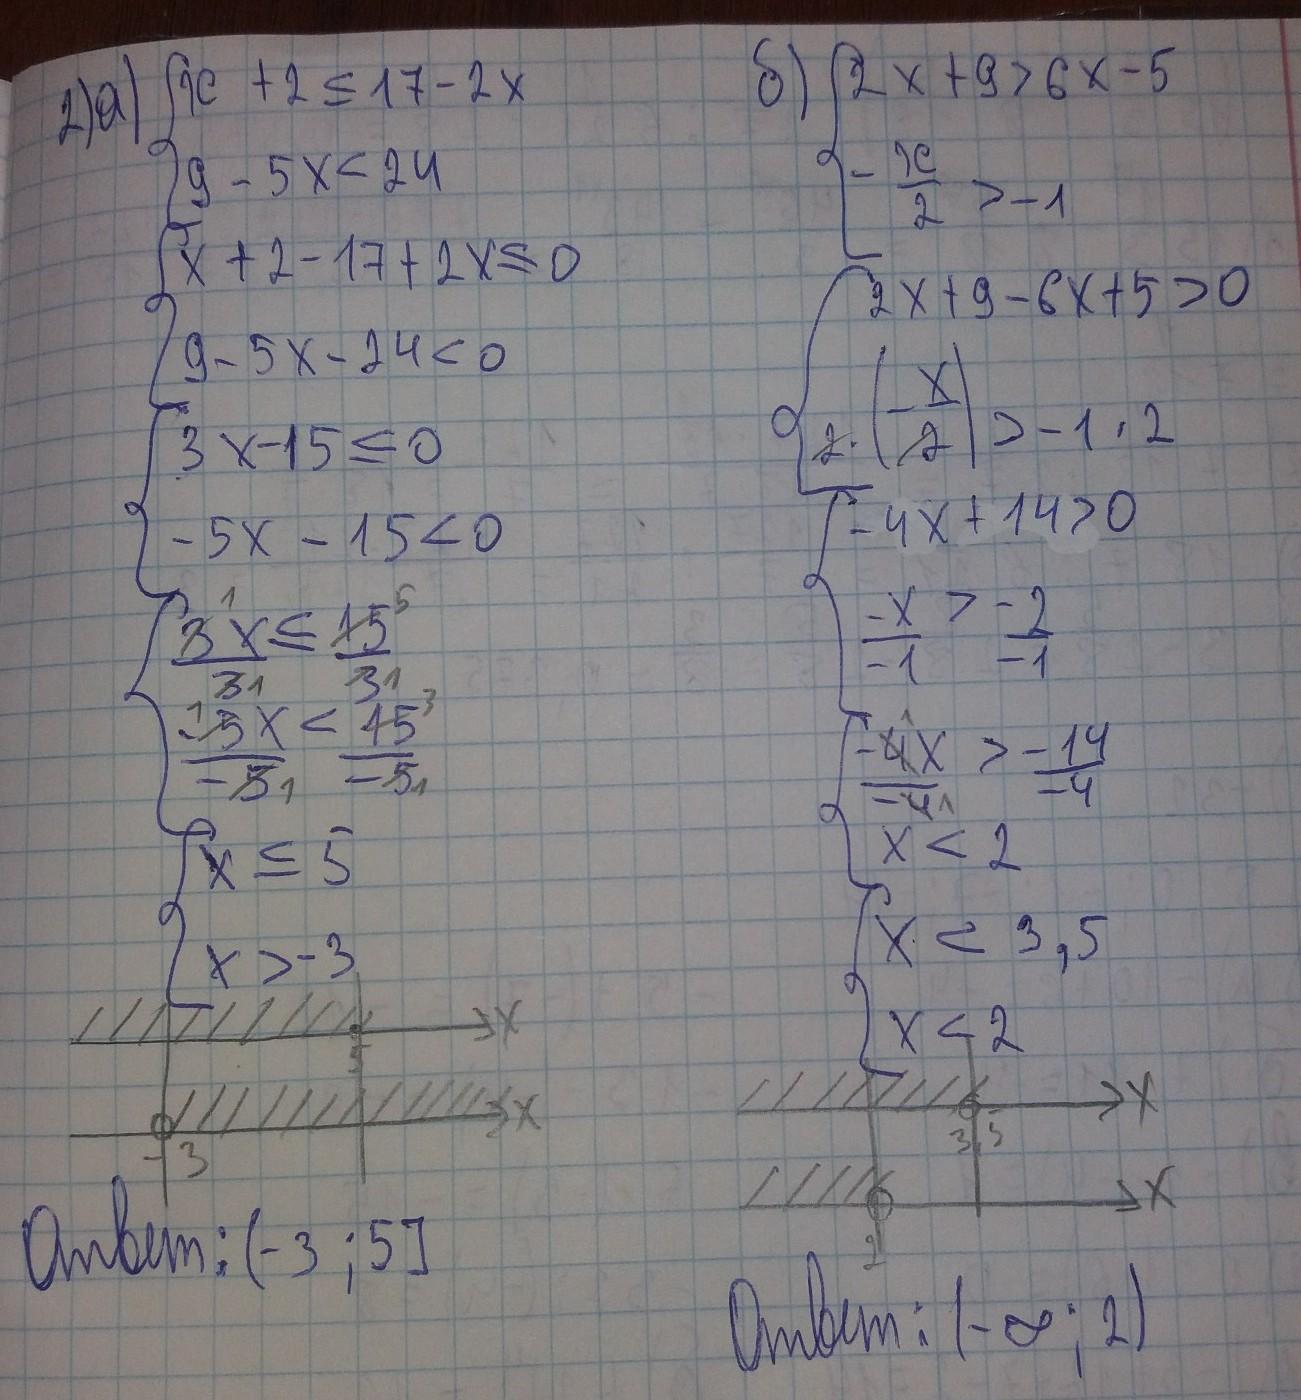 2)а) { x + 2 ≤ 17 - 2x
9 - 5x < 24
x + 2 - 17 + 2x ≤ 0
9 - 5x - 24 < 0
3x - 15 ≤ 0
-5x - 15 < 0
3x/3 ≤ 15/3
-5x/-5 < 15/-5
x ≤ 5
x > -3
5 x
-3 x
Ответ: (-3 ; 5]
б) { 2x + 9 > 6x - 5
-x/2 > -1
2x + 9 - 6x + 5 > 0
2·(-x/2) > -1·2
-4x + 14 > 0
-x/-1 > -2/-1
-4x/-4 > -14/-4
x < 2
x < 3,5
x < 2
3,5 x
2 x
Ответ: (-∞ ; 2)